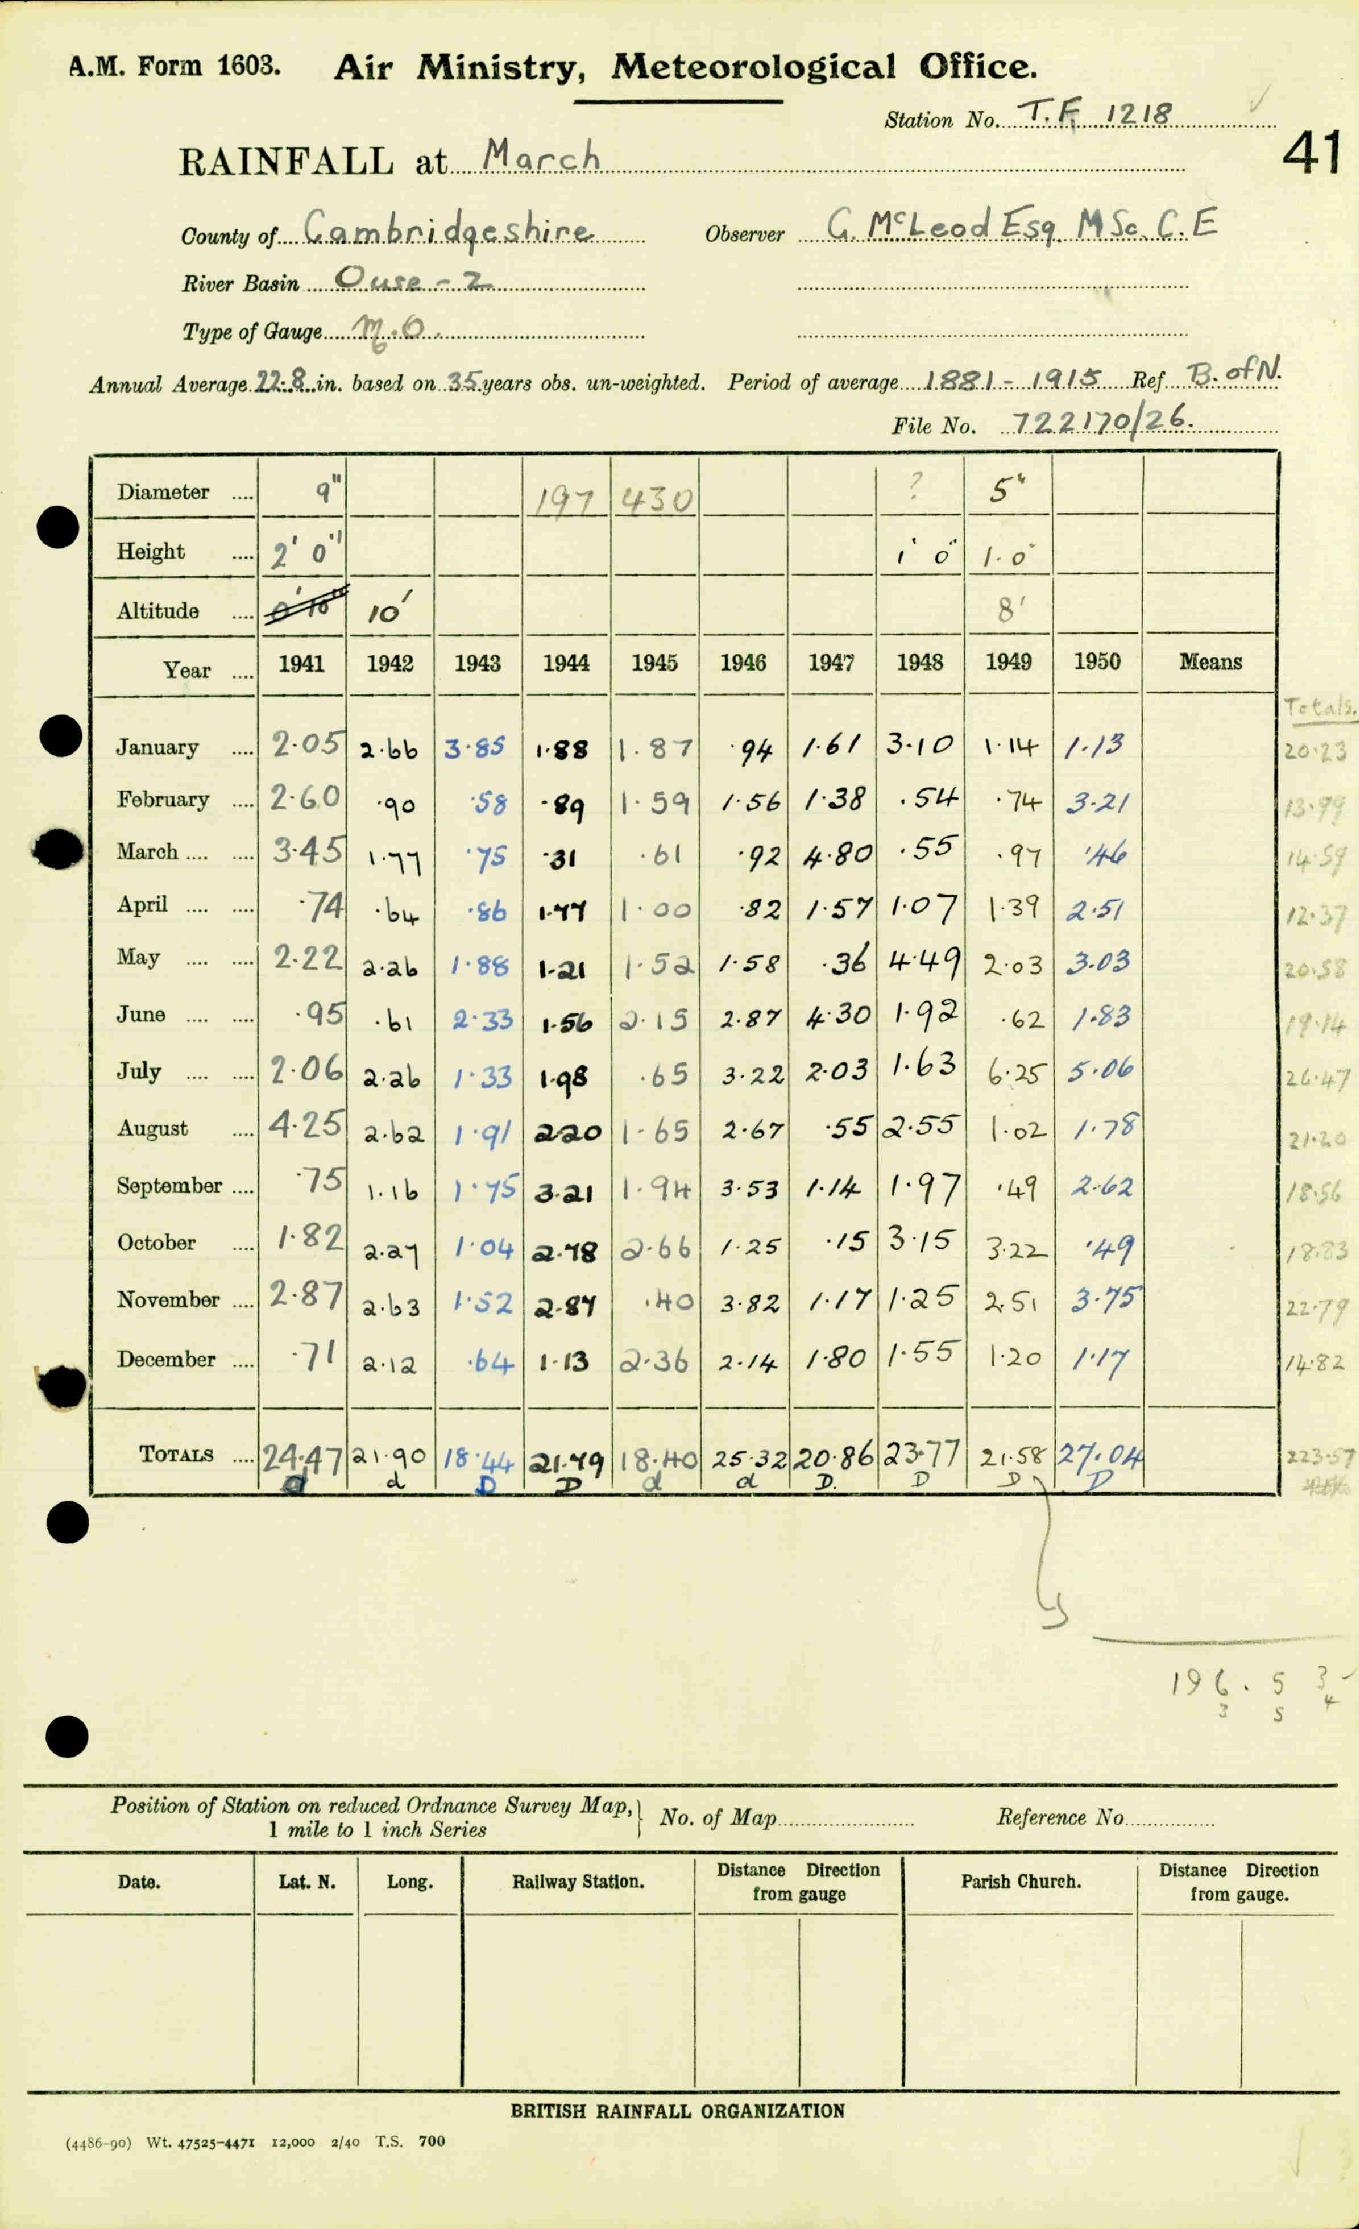 A.M. Form 1603. Air Ministry, Meteorological Office.
Station No. T.F. 1218
41
RAINFALL at March
County of Cambridgeshire Observer G. McLeod Esq. M Sc. C.E
River Basin Ouse - 2
Type of Gauge M.O.
Annual Average 22.8 in. based on 35 years obs. un-weighted. Period of average 1881 - 1915 Ref. B. of N.
File No. 722170/26.
Diameter .... 9" 197 430 ? 5"
Height .... 2' 0" 1' 0" 1. 0"
Altitude .... 0' 10" 10' 8'
Year .... 1941 1942 1943 1944 1945 1946 1947 1948 1949 1950 Means
Totals.
January .... 2.05 2.66 3.85 1.88 1.87 .94 1.61 3.10 1.14 1.13 20.23
February .... 2.60 .90 .58 .89 1.59 1.56 1.38 .54 .74 3.21 13.99
March .... .... 3.45 1.77 .75 .31 .61 .92 4.80 .55 .97 .46 14.59
April .... .... .74 .64 .86 1.77 1.00 .82 1.57 1.07 1.39 2.51 12.37
May .... .... 2.22 2.26 1.88 1.21 1.52 1.58 .36 4.49 2.03 3.03 20.58
June .... .... .95 .61 2.33 1.56 2.15 2.87 4.30 1.92 .62 1.83 19.14
July .... .... 2.06 2.26 1.33 1.98 .65 3.22 2.03 1.63 6.25 5.06 26.47
August .... 4.25 2.62 1.91 2.20 1.65 2.67 .55 2.55 1.02 1.78 21.20
September .... .75 1.16 1.75 3.21 1.94 3.53 1.14 1.97 .49 2.62 18.56
October .... 1.82 2.27 1.04 2.78 2.66 1.25 .15 3.15 3.22 .49 18.83
November .... 2.87 2.63 1.52 2.87 .40 3.82 1.17 1.25 2.51 3.75 22.79
December .... .71 2.12 .64 1.13 2.36 2.14 1.80 1.55 1.20 1.17 14.82
TOTALS .... 24.47 21.90 18.44 21.79 18.40 25.32 20.86 23.77 21.58 27.04 223.57
d d D D d d D. D D D
196. 5 3
3 5 4
Position of Station on reduced Ordnance Survey Map, 1 mile to 1 inch Series } No. of Map Reference No.
Date. Lat. N. Long. Railway Station. Distance Direction from gauge Parish Church. Distance Direction from gauge.
BRITISH RAINFALL ORGANIZATION
(4486-90) Wt. 47525-4471 12,000 2/40 T.S. 700